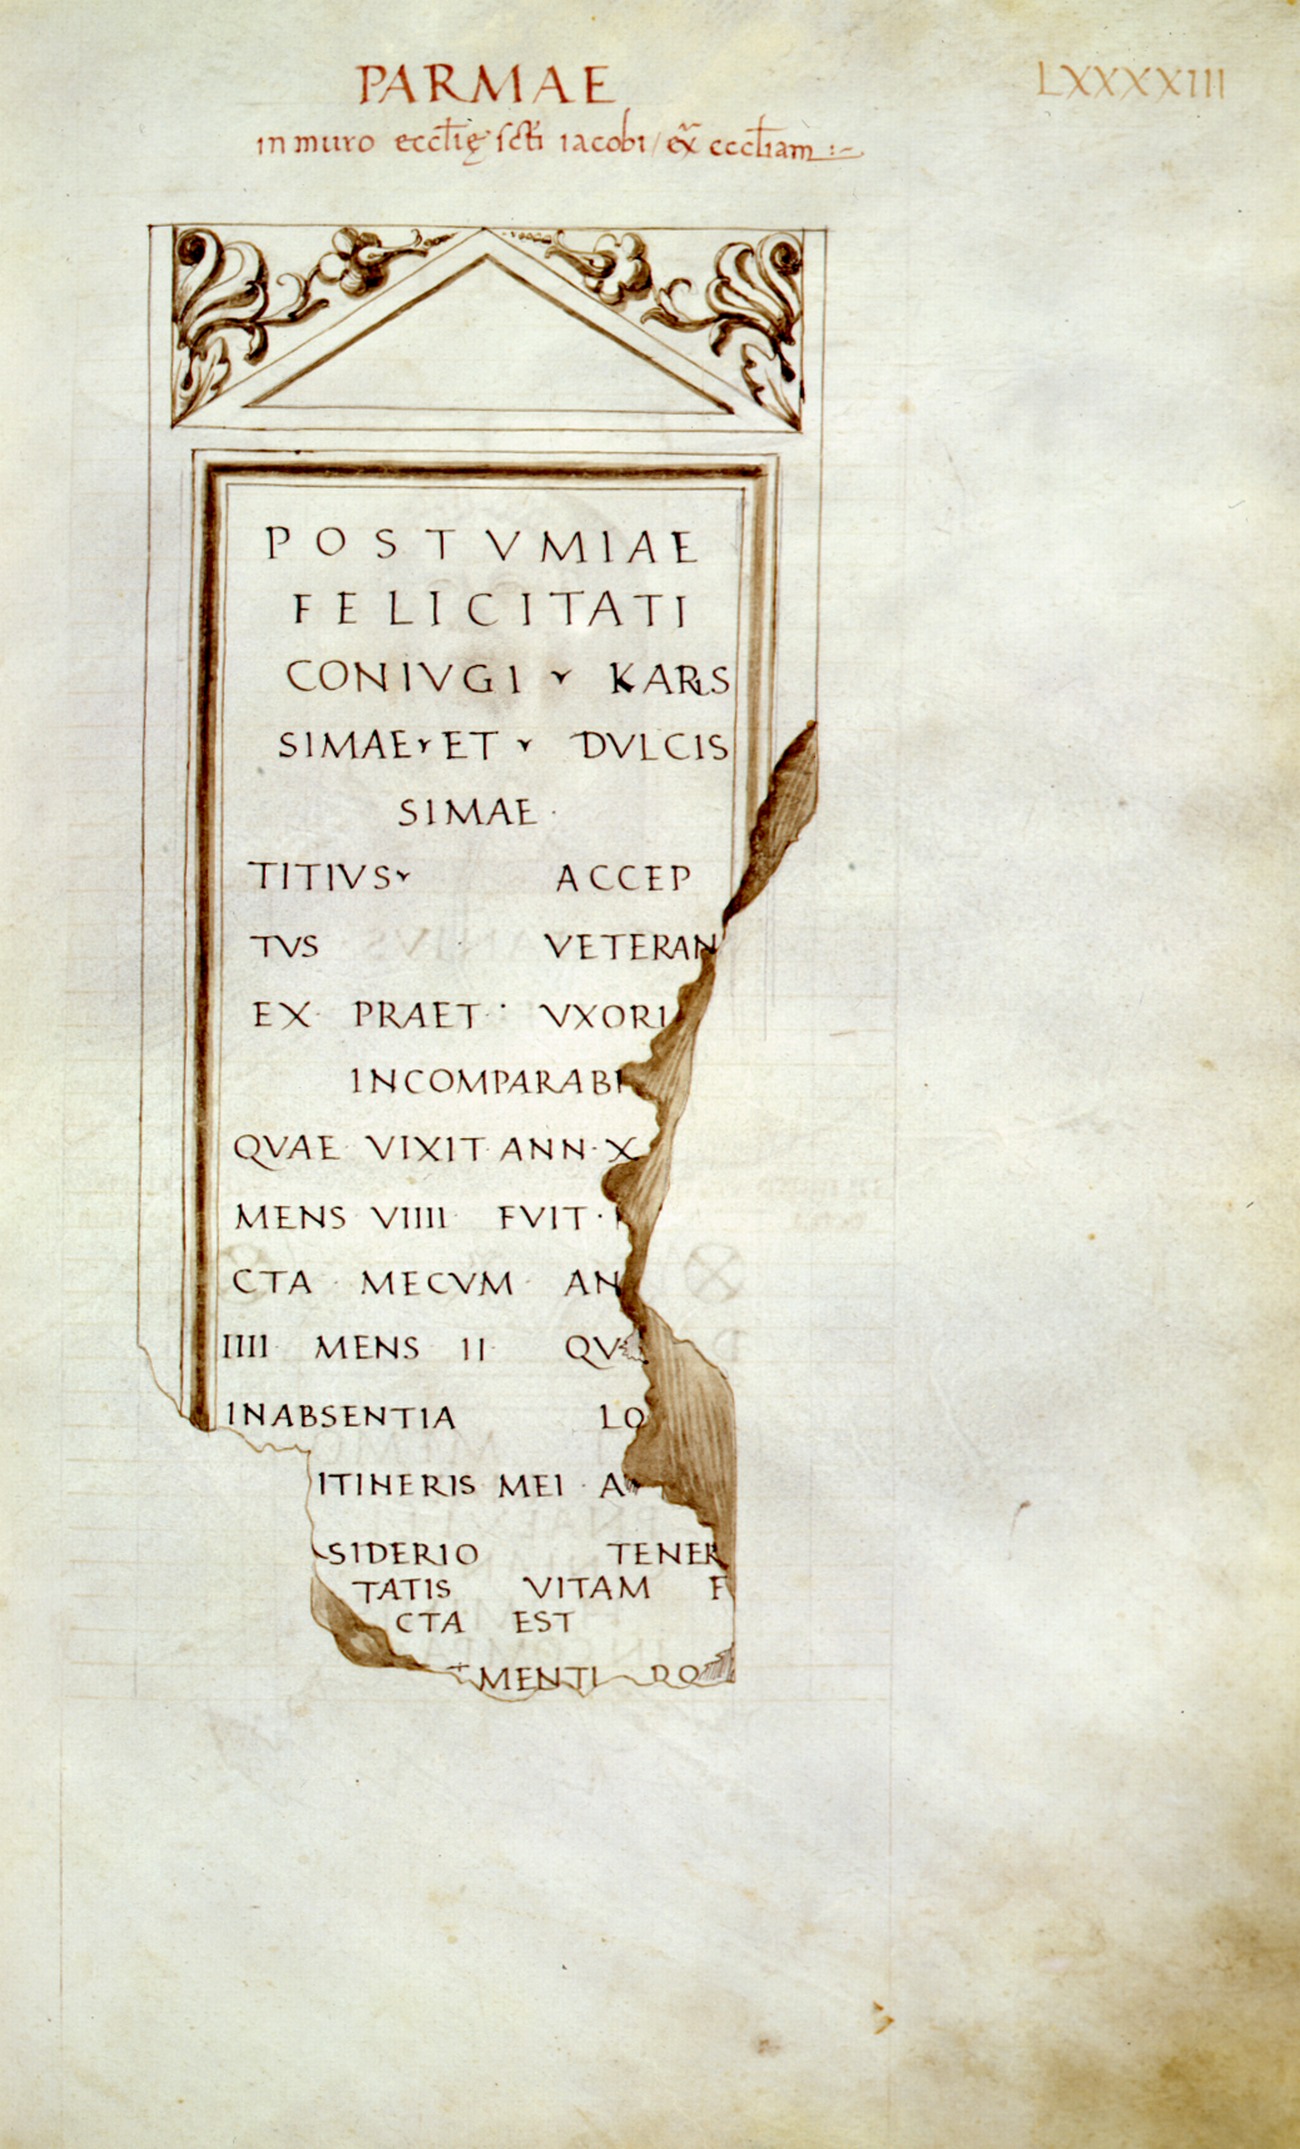 PARMAE
LXXXXIII
in muro eccl̄ię sc̄ti iacobi / ex̄ eccl̄iam :~
POSTVMIAE
FELICITATI
CONIVGI KARIS
SIMAE ET DVLCIS
SIMAE ·
TITIVS ACCEP
TVS VETERAN
EX PRAET · VXORI
INCOMPARABI
QVAE VIXIT · ANN · X
MENS VIIII FVIT ·
CTA · MECVM · AN
IIII MENS II · QV
INABSENTIA LO
ITINERIS MEI · A
SIDERIO TENER
TATIS VITAM F
CTA EST
MENTI DO